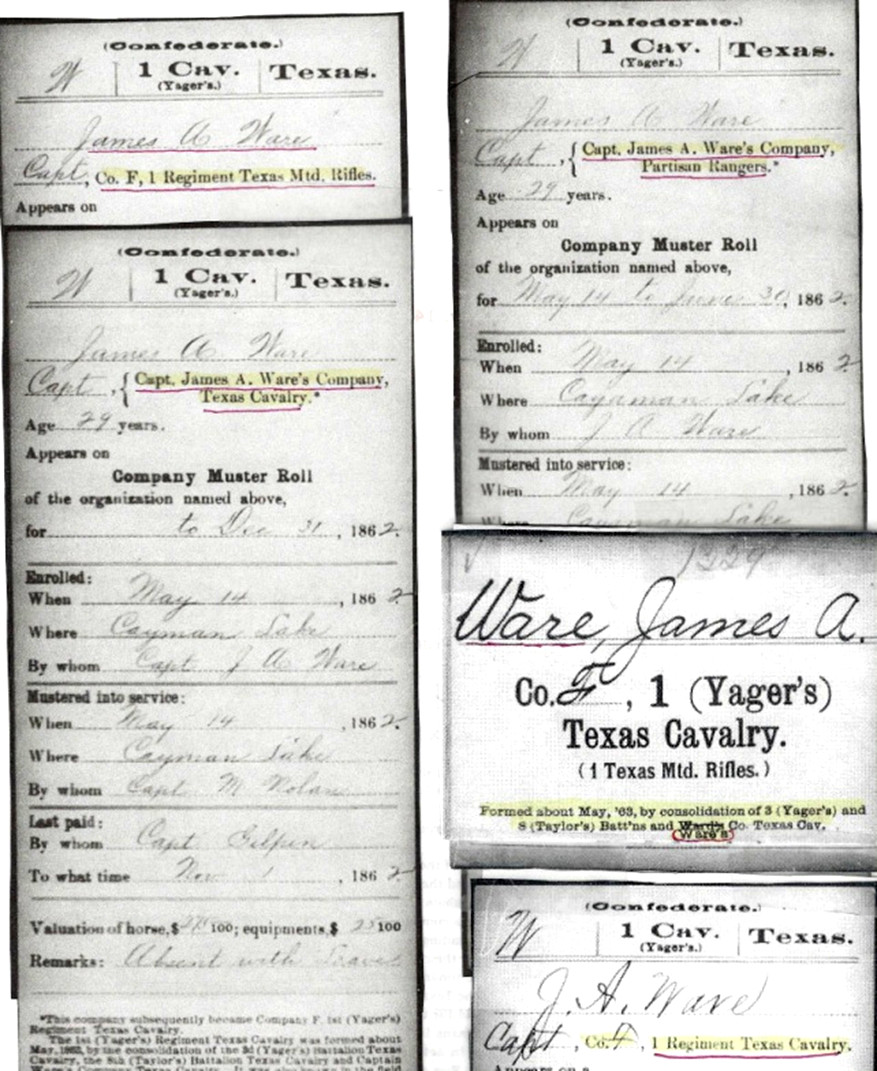 (Confederate.)
W | 1 Cav. | Texas.
(Yager's.)
James A Ware
Capt, Co. F, 1 Regiment Texas Mtd. Rifles.
Appears on
(Confederate.)
W | 1 Cav. | Texas.
(Yager's.)
James A Ware
Capt, { Capt. James A. Ware's Company,
Texas Cavalry.*
Age 29 years.
Appears on
Company Muster Roll
of the organization named above,
for to Dec 31, 1862.
Enrolled:
When May 14, 1862
Where Cayman Lake
By whom Capt J A Ware
Mustered into service:
When May 14, 1862.
Where Cayman Lake
By whom Capt M Nolan
Last paid:
By whom Capt Gilpin
To what time Nov 1, 1862
Valuation of horse, $ 100; equipments, $ 25 100
Remarks: Absent with Leave
*This company subsequently became Company F, 1st (Yager's)
Regiment Texas Cavalry.
The 1st (Yager's) Regiment Texas Cavalry was formed about
May, 1863, by the consolidation of the 3d (Yager's) Battalion Texas
Cavalry, the 8th (Taylor's) Battalion Texas Cavalry and Captain
Ware's Company Texas Cavalry. It was also known in the field
(Confederate.)
W | 1 Cav. | Texas.
(Yager's.)
James A Ware
Capt, { Capt. James A. Ware's Company,
Partisan Rangers.*
Age 29 years.
Appears on
Company Muster Roll
of the organization named above,
for May 14 to June 30, 1862.
Enrolled:
When May 14, 1862
Where Cayman Lake
By whom J A Ware
Mustered into service:
When May 14, 1862.
Where Cayman Lake
1329
Ware, James A.
Co. F, 1 (Yager's)
Texas Cavalry.
(1 Texas Mtd. Rifles.)
Formed about May, '63, by consolidation of 3 (Yager's) and
8 (Taylor's) Batt'ns and Ward's Co. Texas Cav.
Ware's
(Confederate.)
W | 1 Cav. | Texas.
(Yager's.)
J. A. Ware
Capt, Co. F, 1 Regiment Texas Cavalry.
Appears on a